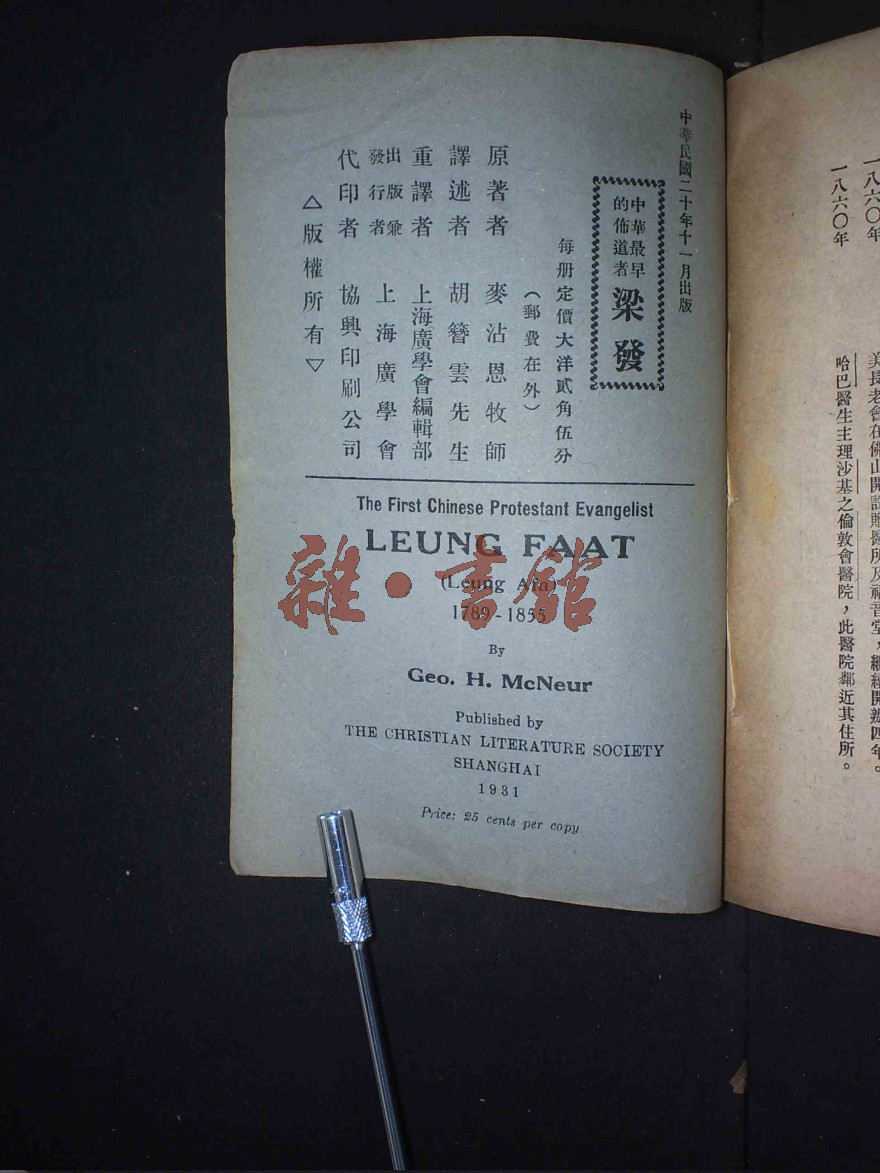 中華民國二十年十一月出版
中華最早
的佈道者
梁發
每册定價大洋貳角伍分
（郵費在外）
原著者 麥沾恩牧師
譯述者 胡簪雲先生
重譯者 上海廣學會編輯部
出版兼
發行者 上海廣學會
代印者 協興印刷公司
△版權所有▽
The First Chinese Protestant Evangelist
LEUNG FAAT
(Leung Afa)
1789-1855
By
Geo. H. McNeur
Published by
THE CHRISTIAN LITERATURE SOCIETY
SHANGHAI
1931
Price: 25 cents per copy
雜·書館
一八六〇年 美長老會在佛山開設贈醫所及福音堂，繼續開辦四年。
一八六〇年 哈巴醫生主理沙基之倫敦會醫院，此醫院鄰近其住所。